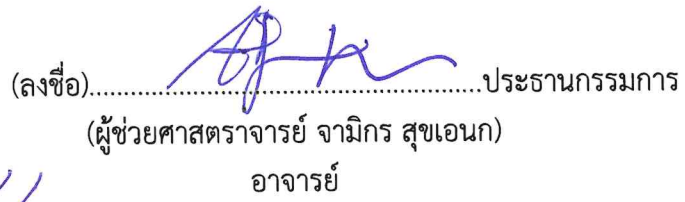 (ลงชื่อ)..........................................................ประธานกรรมการ
(ผู้ช่วยศาสตราจารย์ จามิกร สุขเอนก)
อาจารย์